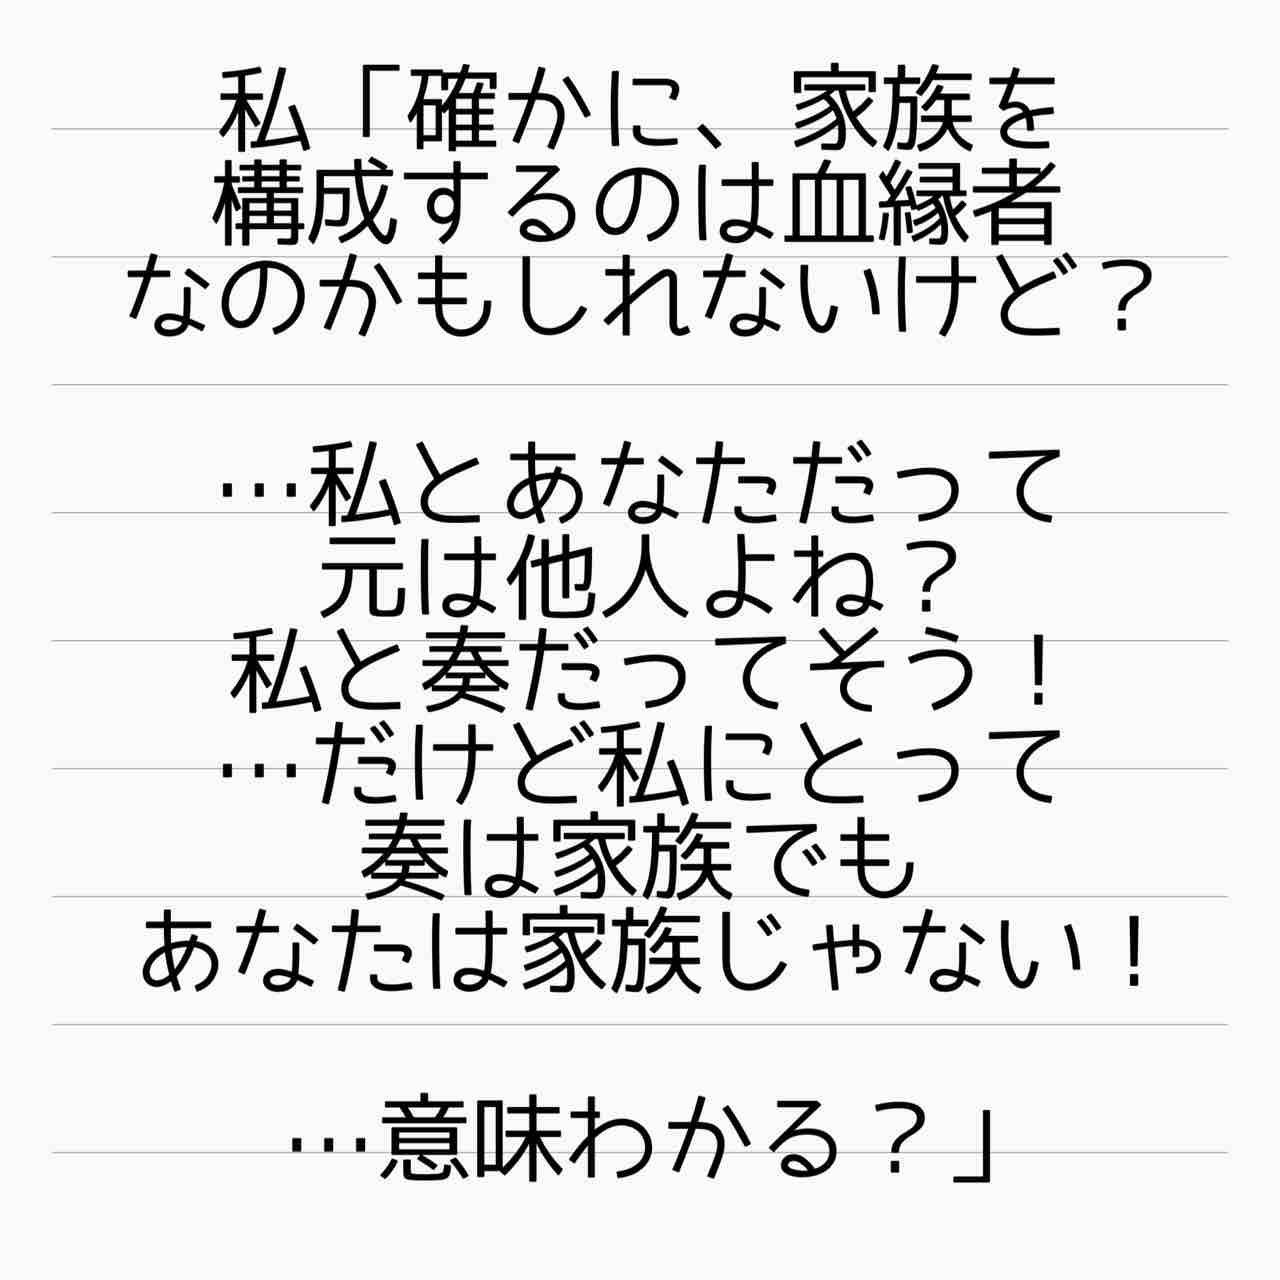 私「確かに、家族を
構成するのは血縁者
なのかもしれないけど？
…私とあなただって
元は他人よね？
私と奏だってそう！
…だけど私にとって
奏は家族でも
あなたは家族じゃない！
…意味わかる？」